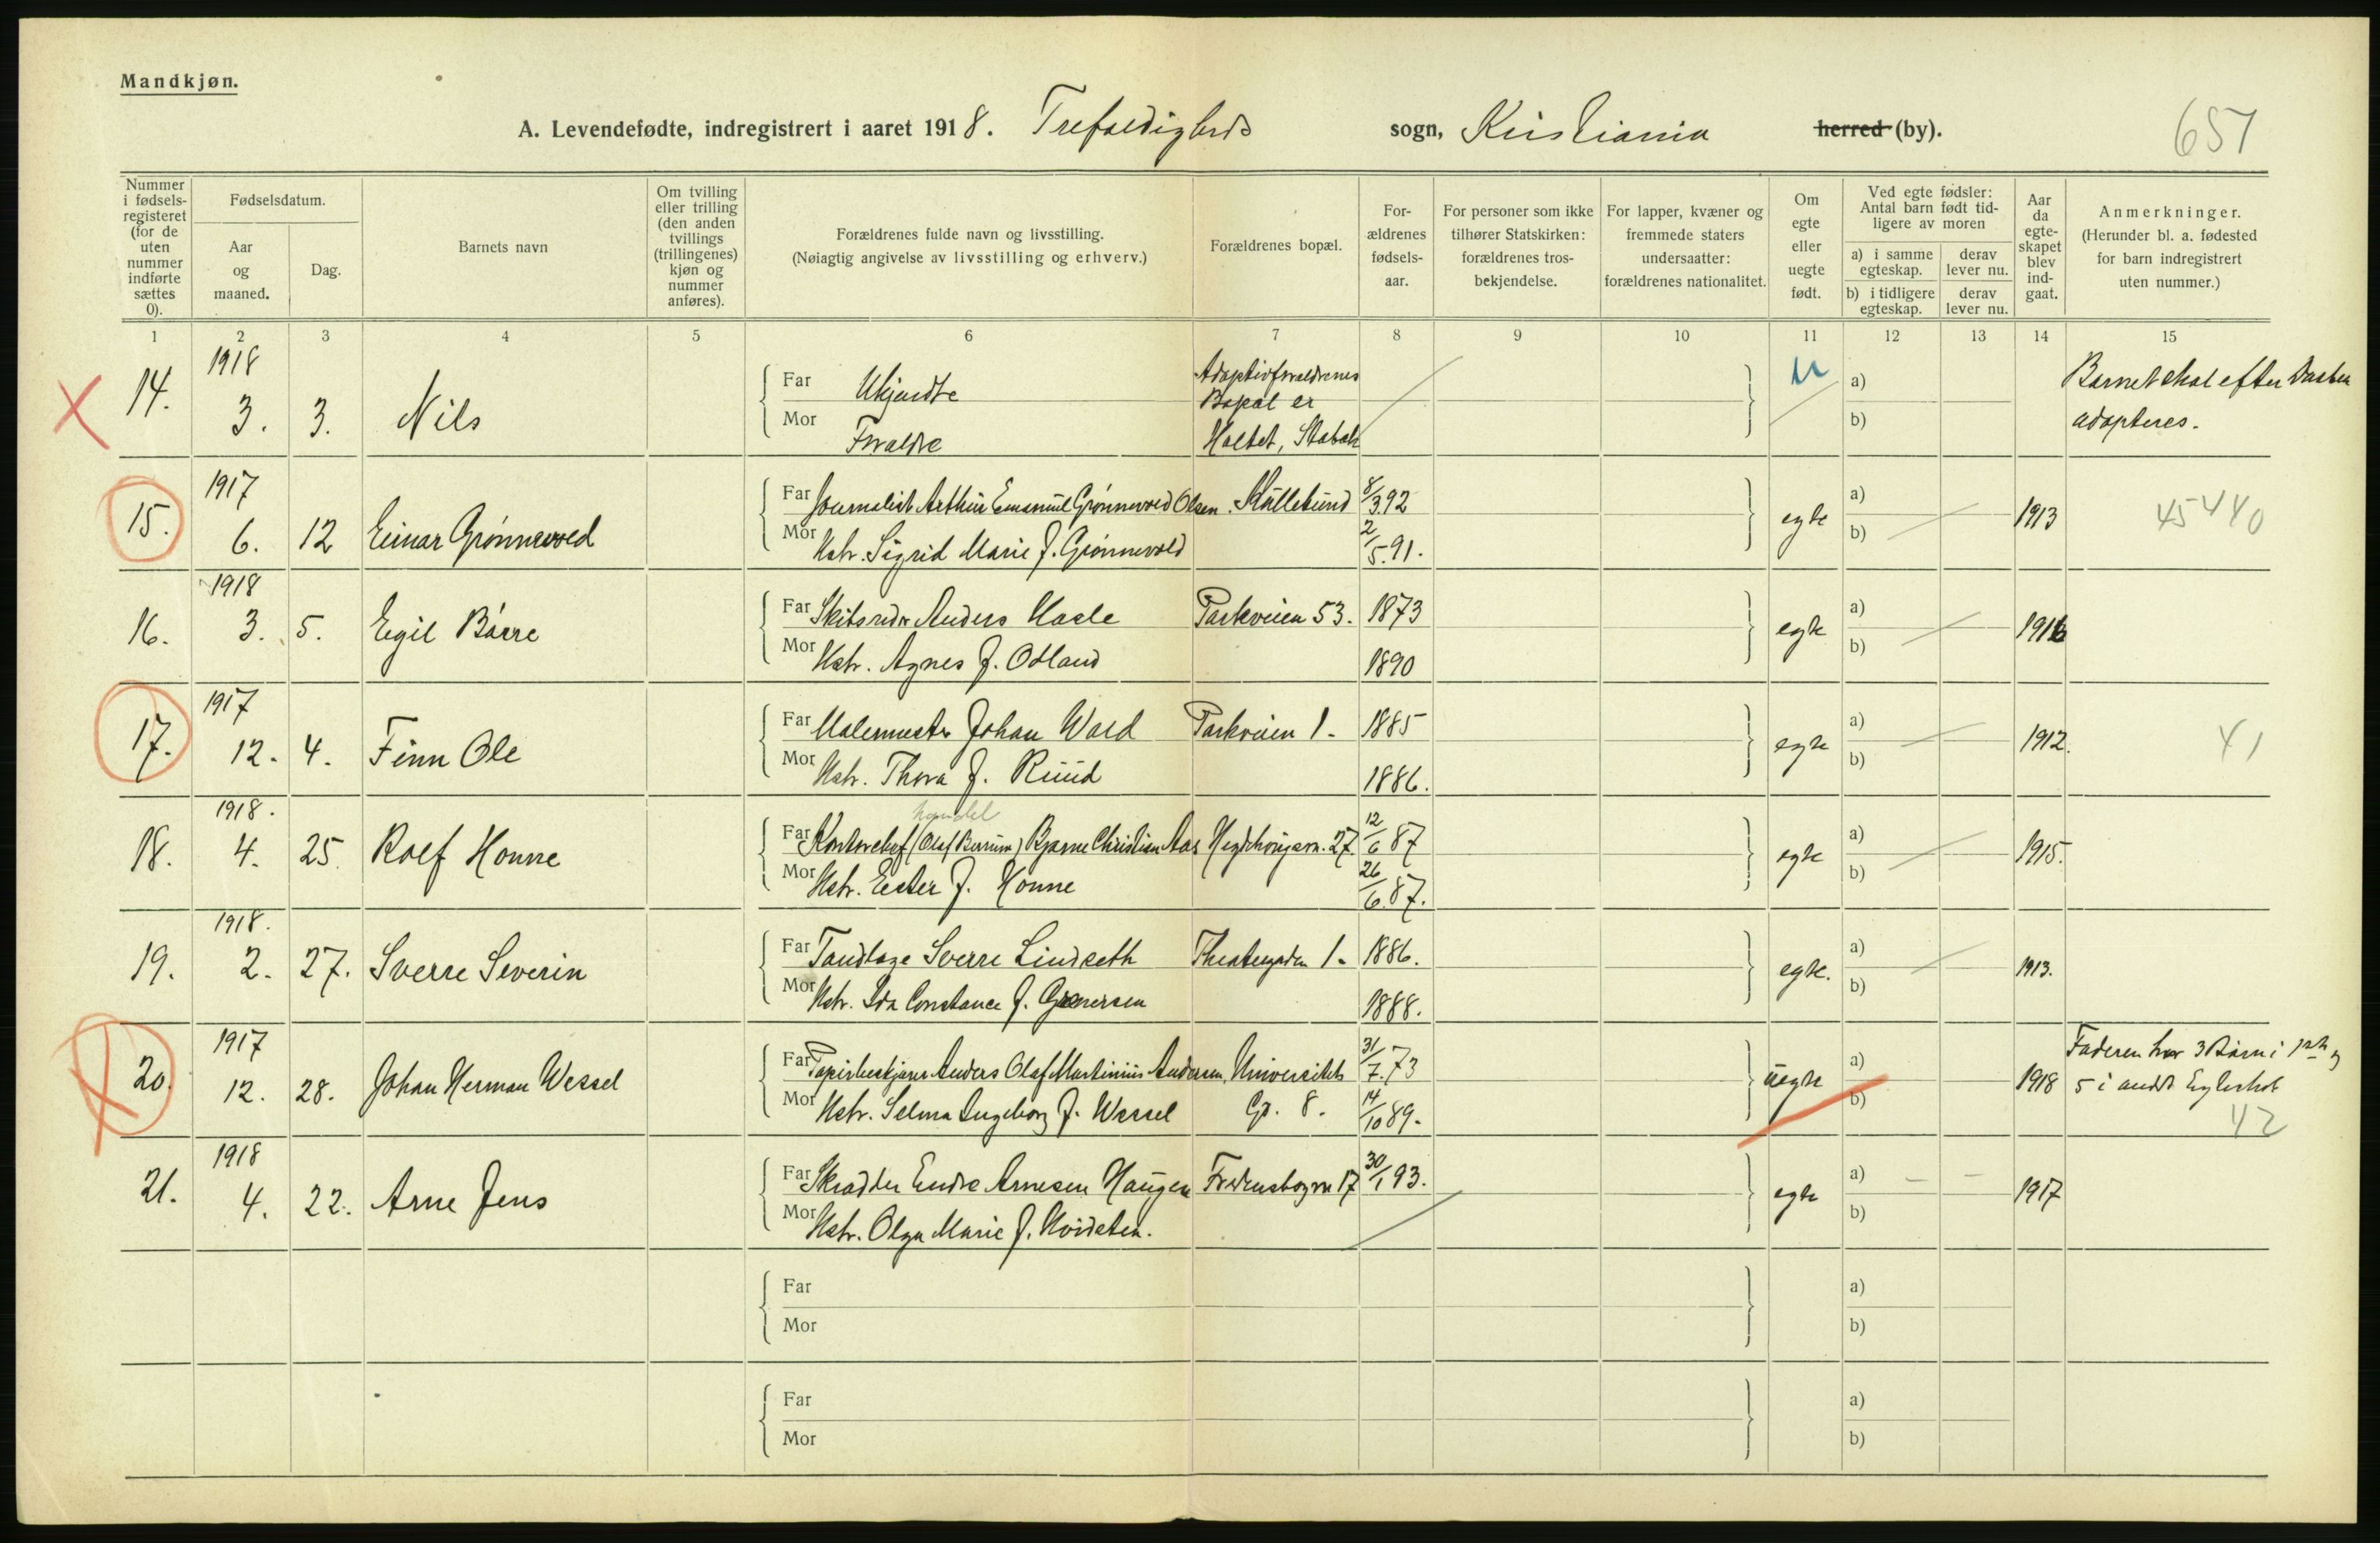 Mandkjøn.
A. Levendefødte, indregistrert i aaret 1918. Trefoldigheds sogn, Kristiania herred (by). 651
Nummer i fødselsregisteret (for de uten nummer indførte sættes 0).
Fødselsdatum.
Aar og maaned.
Dag.
Barnets navn
Om tvilling eller trilling (den anden tvillings (trillingenes) kjøn og nummer anføres).
Forældrenes fulde navn og livsstilling.
(Nøiagtig angivelse av livsstilling og erhverv.)
Forældrenes bopæl.
For-ældrenes fødsels-aar.
For personer som ikke tilhører Statskirken: forældrenes tros-bekjendelse.
For lapper, kvæner og fremmede staters undersaatter: forældrenes nationalitet.
Om egte eller uegte født.
Ved egte fødsler: Antal barn født tid-ligere av moren
a) i samme egteskap. derav lever nu.
b) i tidligere egteskap. derav lever nu.
Aar da egte-skapet blev ind-gaat.
Anmerkninger.
(Herunder bl. a. fødested for barn indregistrert uten nummer.)
1 2 3 4 5 6 7 8 9 10 11 12 13 14 15
14. 1918 3. 3. Nils
Far Ukjendte
Mor Forældre
Adoptivforældrenes Bopæl er Haltet, Stabæk
u a) b)
Barnet skal efter Daaben adopteres.
15. 1917 6. 12 Einar Grønnevold
Far Journalist Arthur Emanuel Grønnevold Olsen. Kullebund 8/3 92
Mor Hstr. Sigrid Marie f. Grønnevold 2/5. 91.
egte a) b) 1913 45440
16. 1918 3. 5. Egil Børre
Far Anders Hasle Parkveien 53. 1873
Mor Hstr. Agnes f. Odland 1890
egte a) b) 1916
17. 1917 12. 4. Finn Ole
Far Malermester Johan Wold Parkveien 1. 1885
Mor Hstr. Thora f. Ruud 1886.
egte a) b) 1912. 41
18. 1918. 4. 25. Rolf Honne
handel
Far Kontorchef (Olaf Berrum) Bjarne Christian Aas Hegdehougsvn. 27. 12/6 87
Mor Hstr. Ester f. Honne 26/6. 87.
egte a) b) 1915.
19. 1918. 2. 27. Sverre Severin
Far Tandlæge Sverre Lindseth Theatergaden 1. 1886.
Mor Hstr. Ida Constance f. Grenersen 1888.
egte. a) b) 1913.
20. 1917 12. 28. Johan Herman Wessel
Far Papirbeskjærer Anders Olaf Martinius Andersen, Universitets 31/7. 73
Mor Hstr. Selma Ingeborg f. Wessel Gt. 8. 14/10 89.
uegte a) b) 1918
Faderen har 3 Børn i 1ste og
5 i andet Egteskab
42
21. 1918 4. 22. Arne Jens
Far Skrædder Endre Arnesen Haugen Fredensborgvn 17 30/1 93.
Mor Hstr. Olga Marie f. Hvidsten.
egte a) b) 1917
Far
Mor
a)
b)
Far
Mor
a)
b)